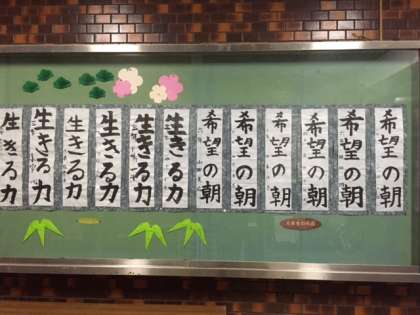 希望の朝
希望の朝
希望の朝
希望の朝
希望の朝
希望の朝
生きる力
生きる力
生きる力
生きる力
生きる力
生きる力